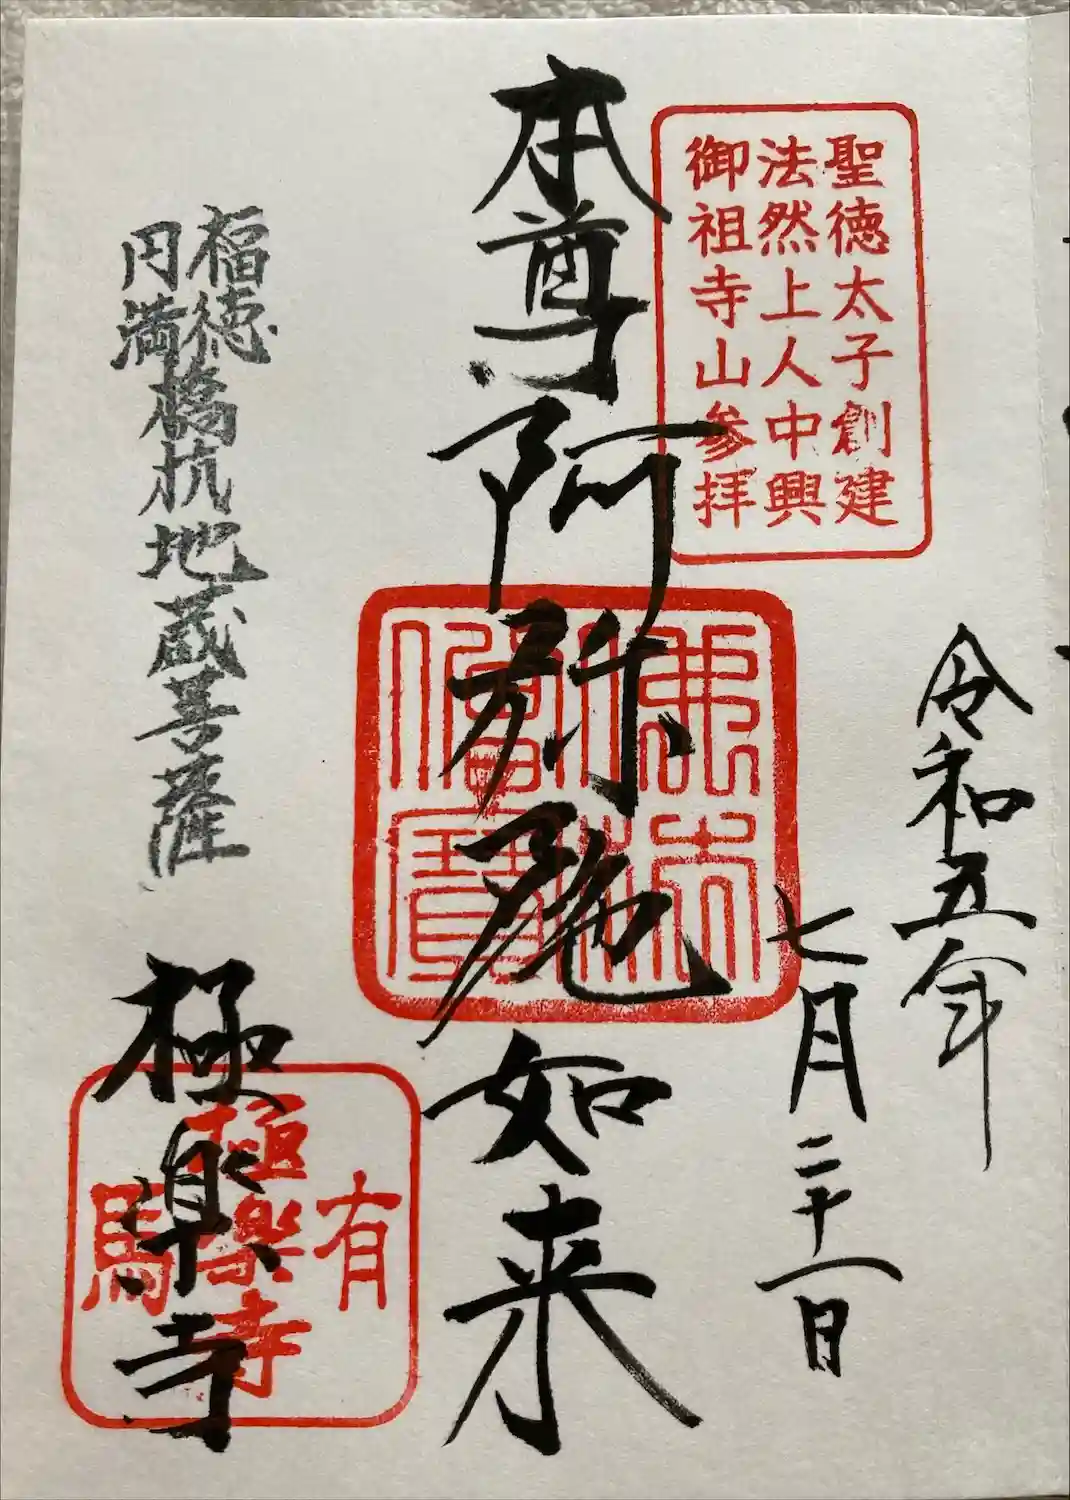 聖徳太子創建
法然上人中興
御祖寺山参拝
令和五年
七月二十一日
本尊阿弥陀如来
佛法僧寳
福徳
円満
橋杭地蔵菩薩
極楽寺
有
極楽寺
馬